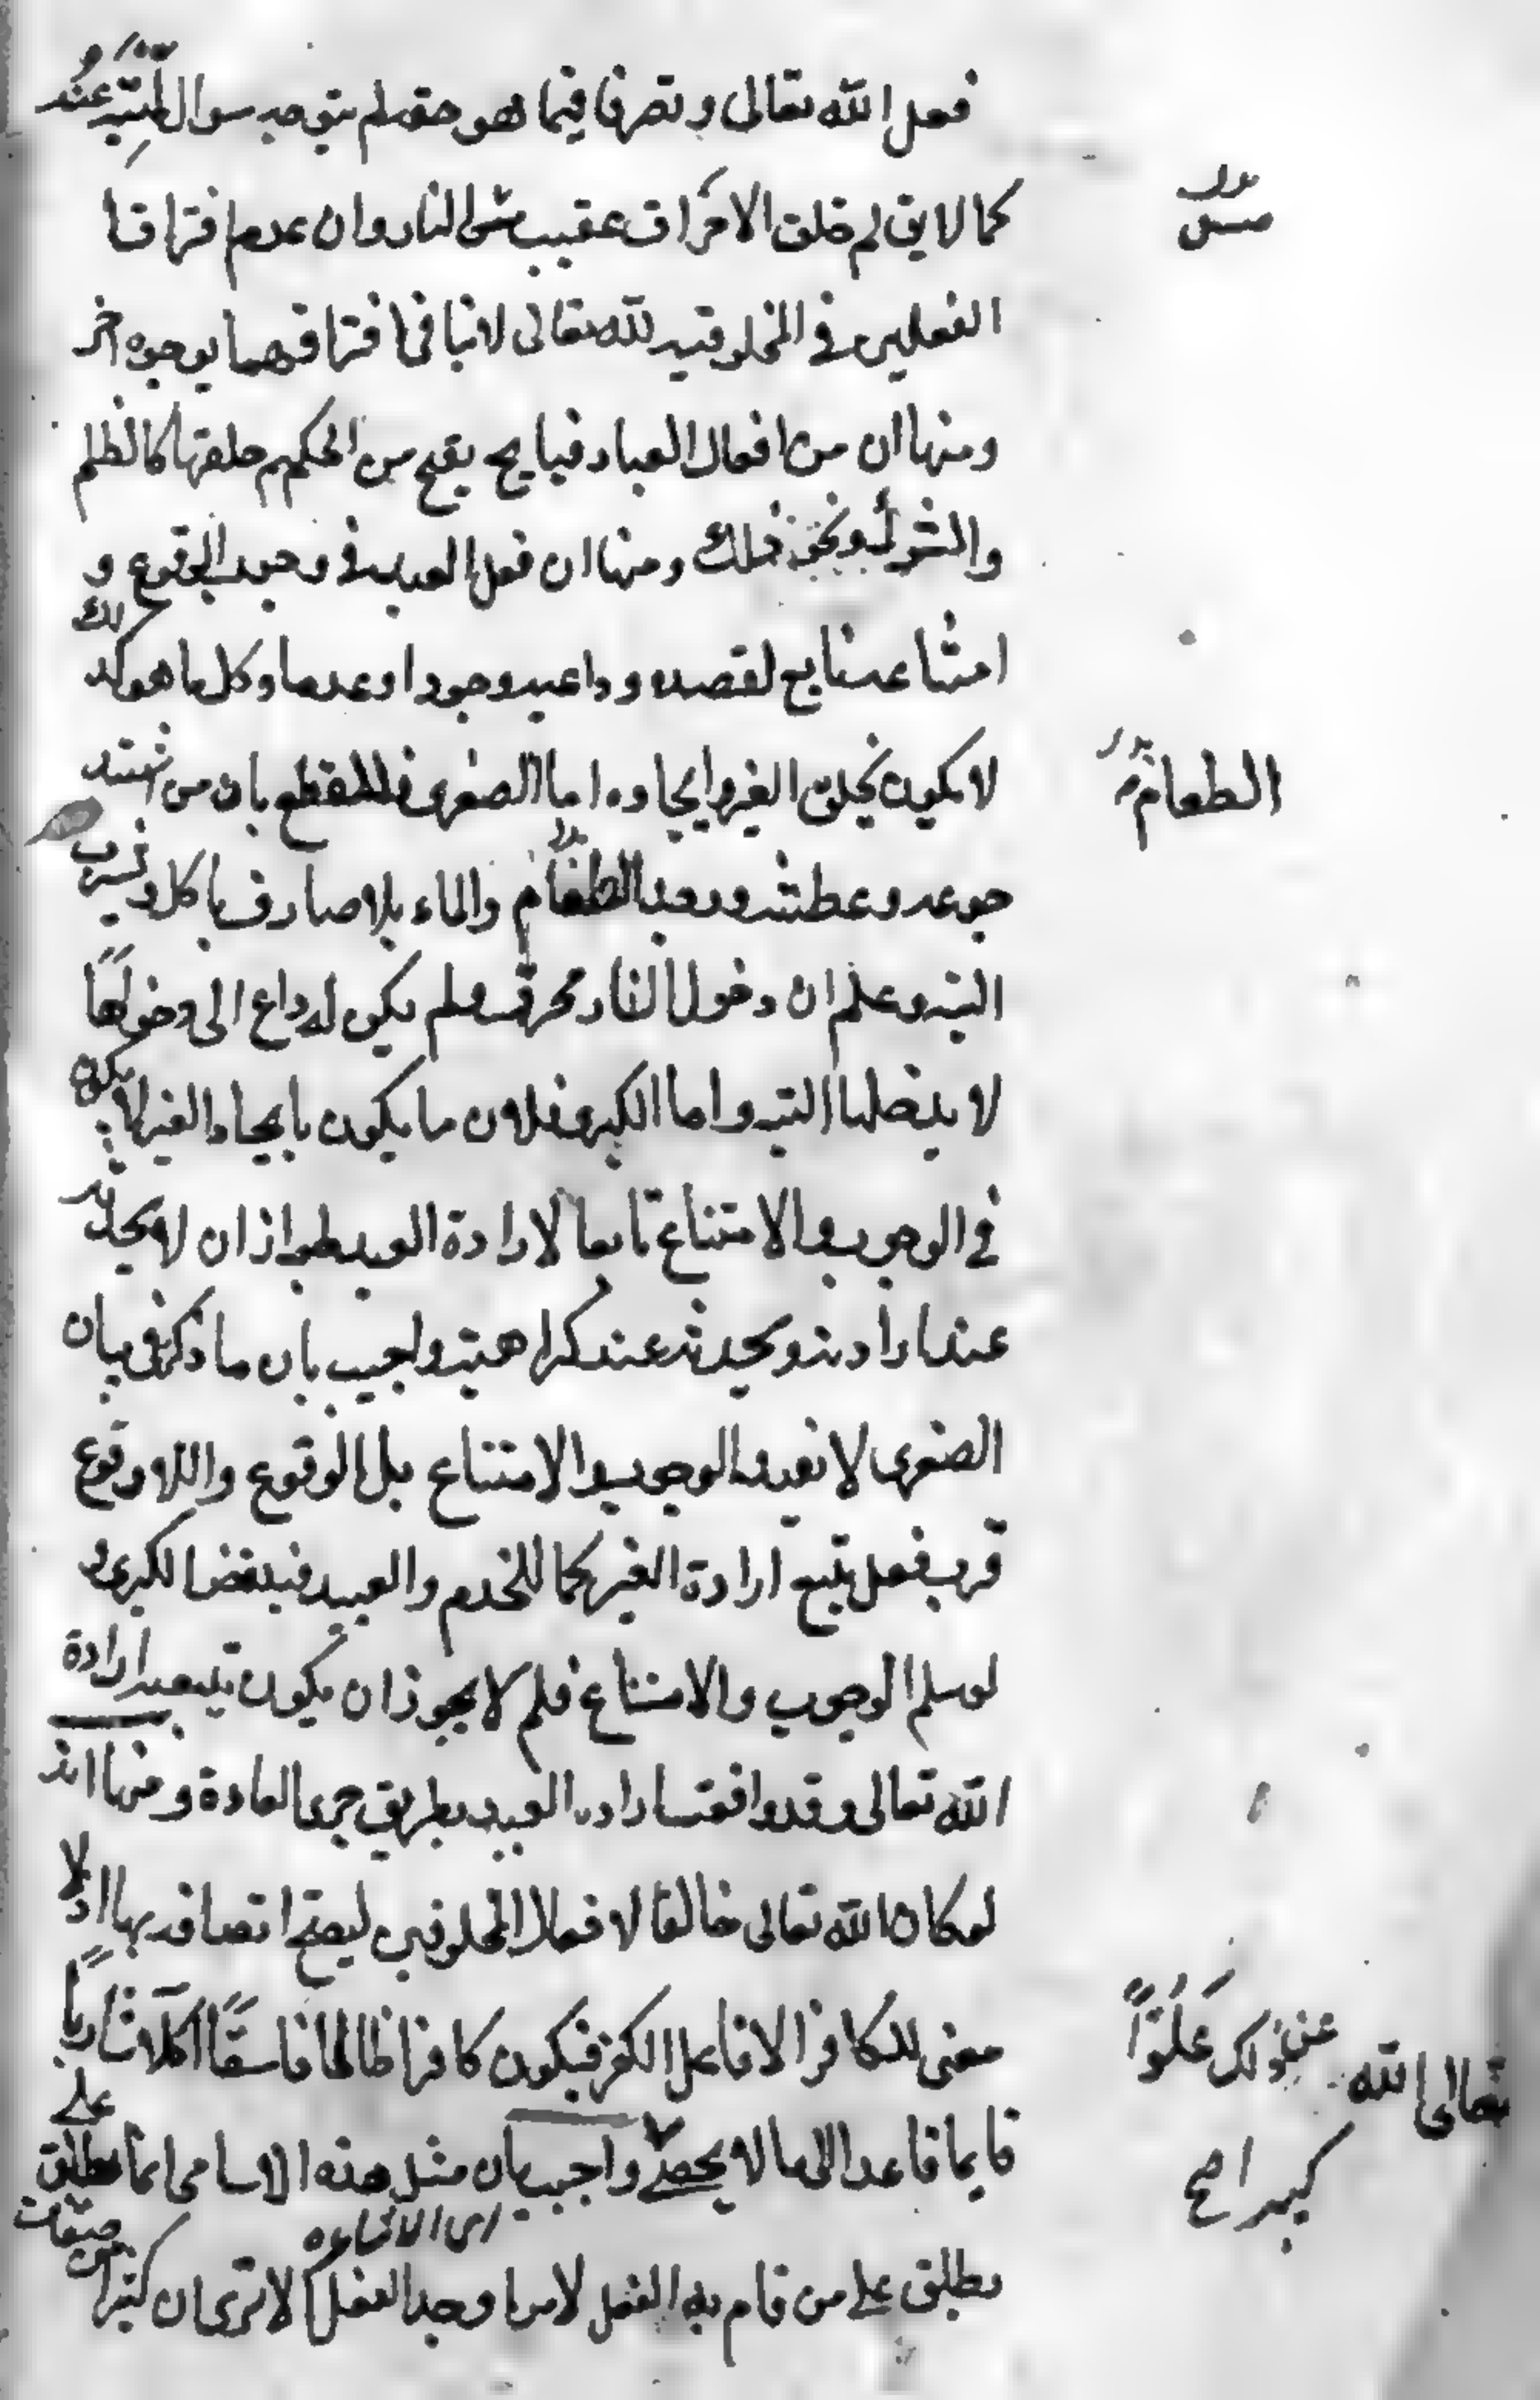 فعل الله تعالى وتصرفا فيما هو حقه لم يتوجه سوال لميته عند
كما لا يق لم خلق الاحراق عقيب مس النار وان عدم افتراقا
بدل
مس
الفعلين في المخلوقية لله تعالى لا ينافي افتراقهما بوجوه اخر
ومنها ان من افعال العباد قبايح يقبح من الحكيم خلقها كالظلم
والشرك ونحو ذلك ومنها ان فعل العبد في وجوب الوقوع و
امتناعه تابع لقصده وداعيه وجودا وعدما وكل ما هو كذلك
لا يكون بخلق الغير وايجاده اما الصغرى فللقطع بان من اشتد
الطعام بدل
جوعه وعطشه ووجد الطعام والماء بلا صارف ياكل ويشرب
البتة وعلم ان دخول النار محرقة ولم يكن له داع الى دخولها
لا يدخلها البتة واما الكبرى فلان ما يكون بايجاد الغير لا يكون
في الوجوب والامتناع تابعا لارادة العبد لجواز ان لا يحدثه
عند ارادته ويحدثه عند كراهته واجيب بان ما ذكر في بيان
الصغرى لا يفيد الوجوب والامتناع بل الوقوع واللاوقوع
فرب فعل يتبع ارادة الغير كما للخدم والعبيد فينقض الكبرى و
لو سلم الوجوب والامتناع فلم لا يجوز ان يكون بتبعية ارادة
الله تعالى وقد وافقت ارادة العبد بطريق جرى العادة ومنها انه
لو كان الله تعالى خالقا لافعال المخلوقين ليصح اتصافه بها اذ لا
معنى للكافر الا فاعل الكفر فيكون كافرا ظالما فاسقا اكلا شاربا
تعالى الله عن ذلك علوا
كبيرا صح
قايما قاعدا الى ما لا يحصى واجيب بان مثل هذه الاسامى انما يطلق على
اى الاتحاده
يطلق على من قام به الفعل لا من اوجد الفعل الا ترى ان كثيرا من صفات